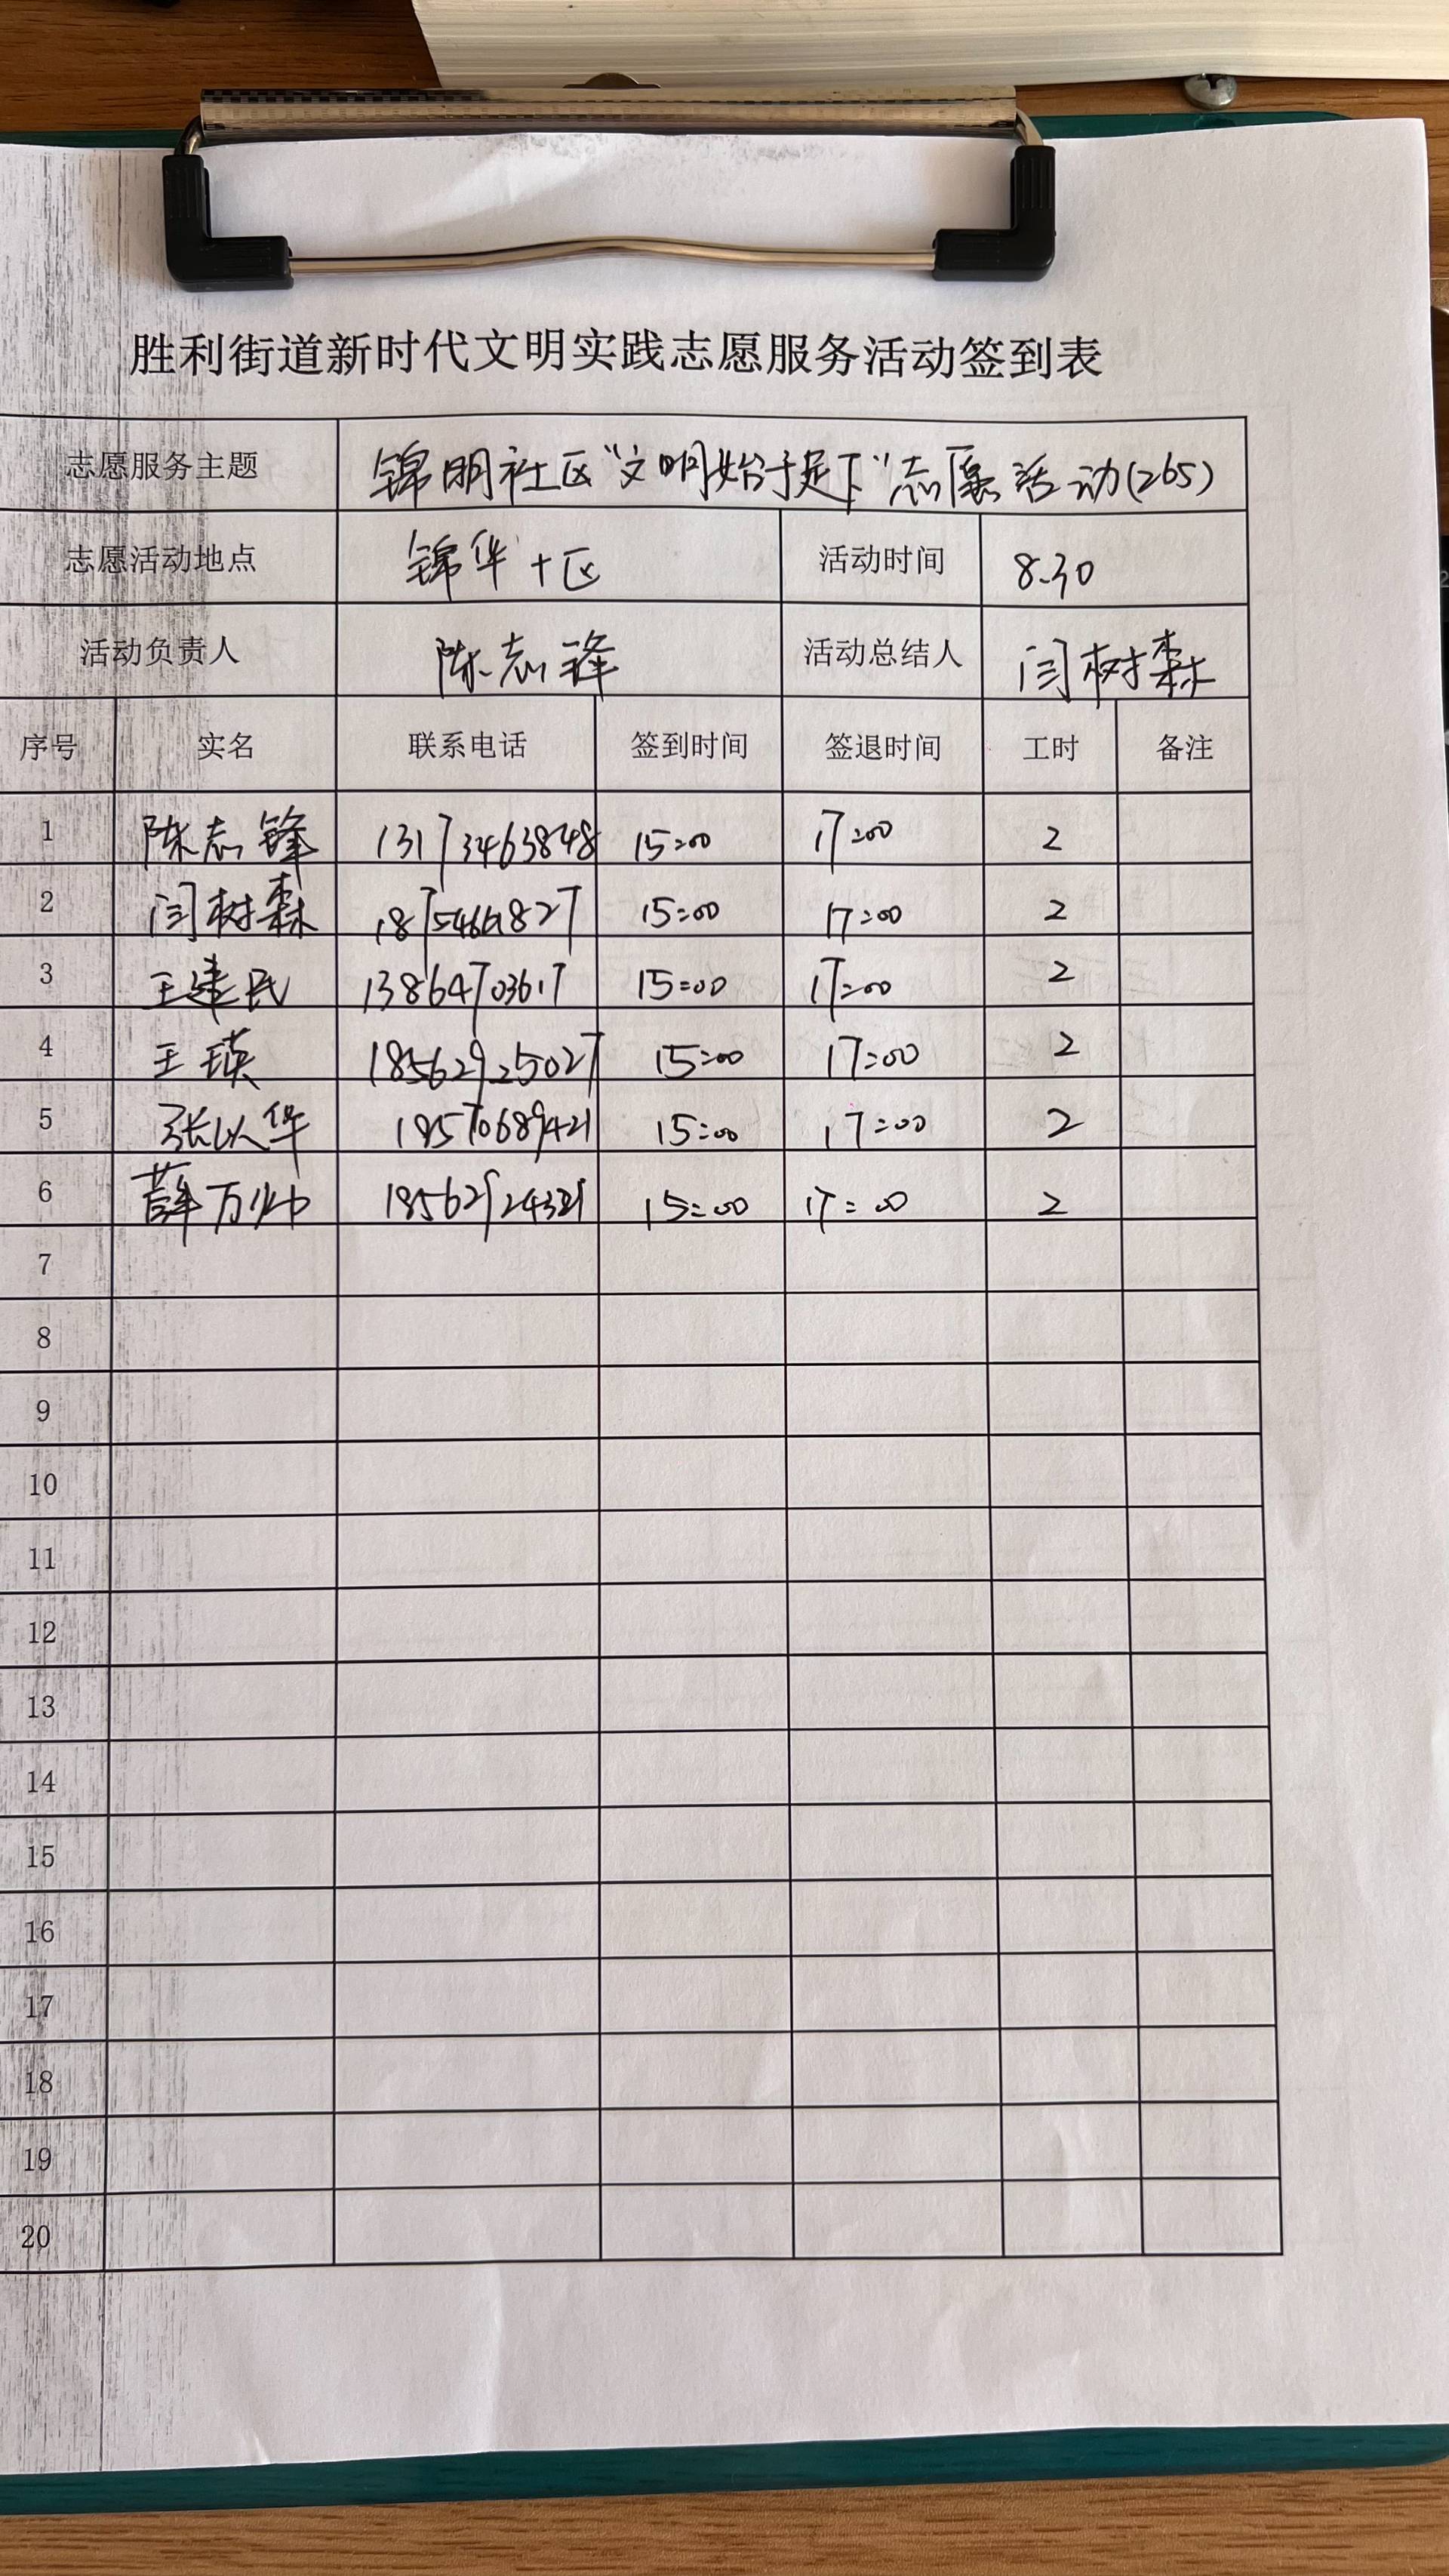 胜利街道新时代文明实践志愿服务活动签到表
志愿服务主题 锦明社区“文明始于足下”志愿活动(265)
志愿活动地点 锦华十区 活动时间 8.30
活动负责人 陈志锋 活动总结人 闫树森
序号 实名 联系电话 签到时间 签退时间 工时 备注
1 陈志锋 13173463848 15:00 17:00 2
2 闫树森 15:00 17:00 2
3 王建民 13864703617 15:00 17:00 2
4 王瑛 18562925027 15:00 17:00 2
5 张以华 15:00 17:00 2
6 薛万帅 15:00 17:00 2
7
8
9
10
11
12
13
14
15
16
17
18
19
20